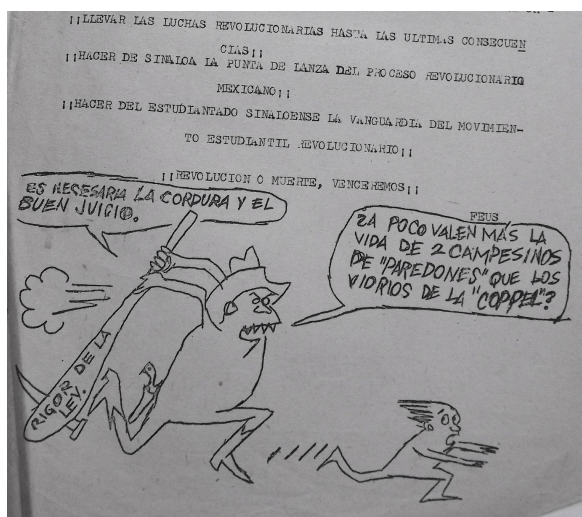 ¡¡LLEVAR LAS LUCHAS REVOLUCIONARIAS HASTA LAS ULTIMAS CONSECUEN
CIAS¡¡
¡¡HACER DE SINALOA LA PUNTA DE LANZA DEL PROCESO REVOLUCIONARIO
MEXICANO¡¡
¡¡HACER DEL ESTUDIANTADO SINALOENSE LA VANGUARDIA DEL MOVIMIEN-
TO ESTUDIANTIL REVOLUCIONARIO¡¡
¡¡REVOLUCION O MUERTE, VENCEREMOS¡¡
FEUS
ES NECESARIA LA CORDURA Y EL
BUEN JUICIO.
¿A POCO VALEN MÁS LA
VIDA DE 2 CAMPESINOS
DE "PAREDONES" QUE LOS
VIDRIOS DE LA "COPPEL"?
RIGOR DE LA
LEY.